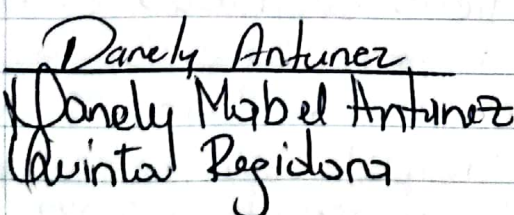 Danely Antunez
Danely Mabel Antunez
Quinta Regidora